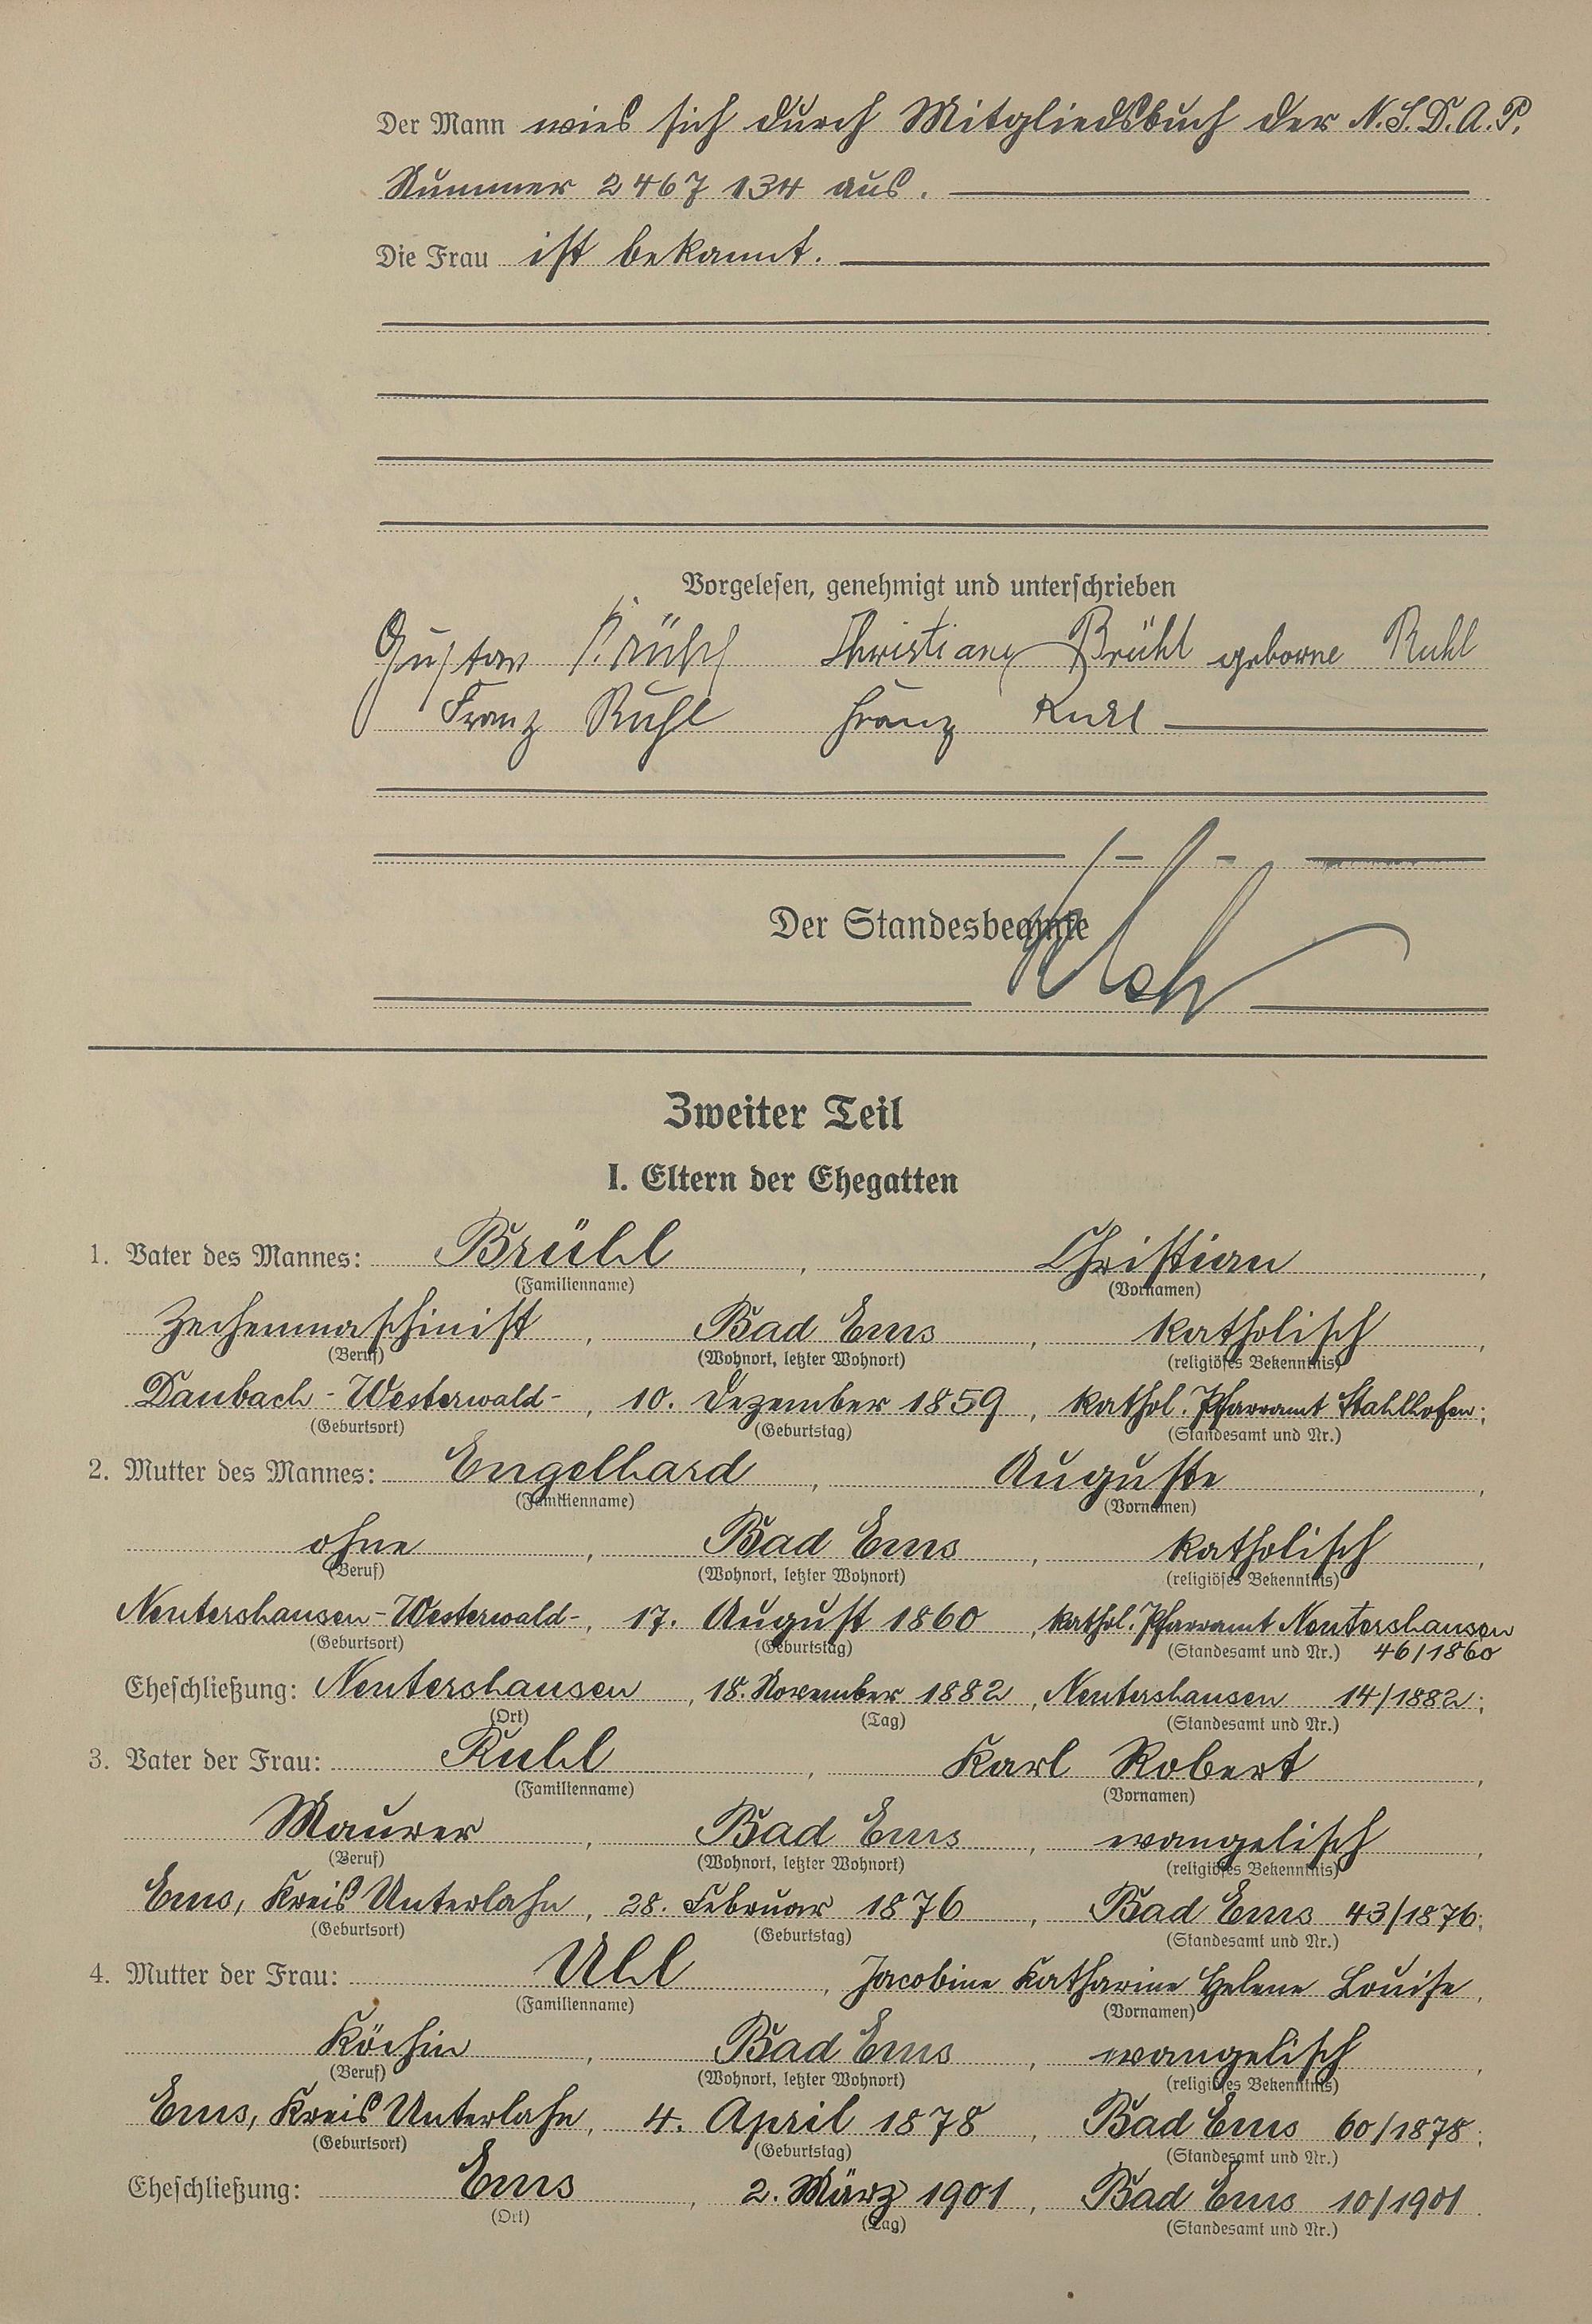 Der Mann wies sich durch Mitgliedsbuch der N.S.D.A.P.
Nummer 2467 134 aus.
Die Frau ist bekannt.
Vorgelesen, genehmigt und unterschrieben
Gustav Brühl Christiane Brühl geborne Ruhl
Franz Ruhl Franz
Der Standesbeamte
Zweiter Teil
I. Eltern der Ehegatten
1. Vater des Mannes: Brühl, Christian,
(Familienname) (Vornamen)
Zechenmaschinist, Bad Ems, katholisch,
(Beruf) (Wohnort, letzter Wohnort) (religiöses Bekenntnis)
Daubach - Westerwald -, 10. Dezember 1859, kathol. Pfarramt Stahlhofen;
(Geburtsort) (Geburtstag) (Standesamt und Nr.)
2. Mutter des Mannes: Engelhard, Auguste,
(Familienname) (Vornamen)
ohne, Bad Ems, katholisch,
(Beruf) (Wohnort, letzter Wohnort) (religiöses Bekenntnis)
Nentershausen - Westerwald -, 17. August 1860, kathol. Pfarramt Nentershausen
(Geburtsort) (Geburtstag) (Standesamt und Nr.) 46/1860
Eheschließung: Nentershausen, 18. November 1882, Nentershausen 14/1882;
(Ort) (Tag) (Standesamt und Nr.)
3. Vater der Frau: Ruhl, Karl Robert,
(Familienname) (Vornamen)
Maurer, Bad Ems, evangelisch,
(Beruf) (Wohnort, letzter Wohnort) (religiöses Bekenntnis)
Ems, Kreis Unterlahn, 28. Februar 1876, Bad Ems 43/1876;
(Geburtsort) (Geburtstag) (Standesamt und Nr.)
4. Mutter der Frau: Uhl, Jacobine Katharine Helene Louise,
(Familienname) (Vornamen)
Köchin, Bad Ems, evangelisch,
(Beruf) (Wohnort, letzter Wohnort) (religiöses Bekenntnis)
Ems, Kreis Unterlahn, 4. April 1878, Bad Ems 60/1878;
(Geburtsort) (Geburtstag) (Standesamt und Nr.)
Eheschließung: Ems, 2. März 1901, Bad Ems 10/1901.
(Ort) (Tag) (Standesamt und Nr.)